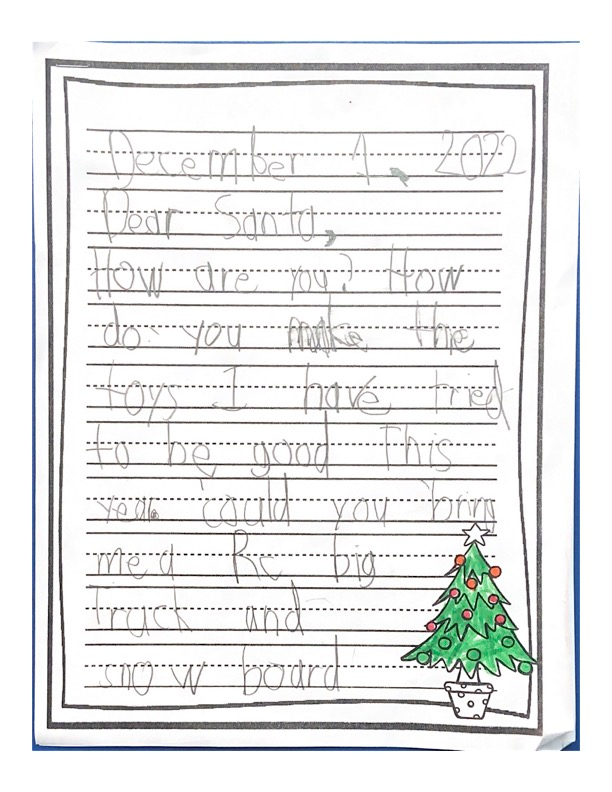 December 1, 2022
Dear Santa,
How are you? How
do you make the
toys I have tried
to be good This
year. could you bring
me a Rc big
truck and
snow board